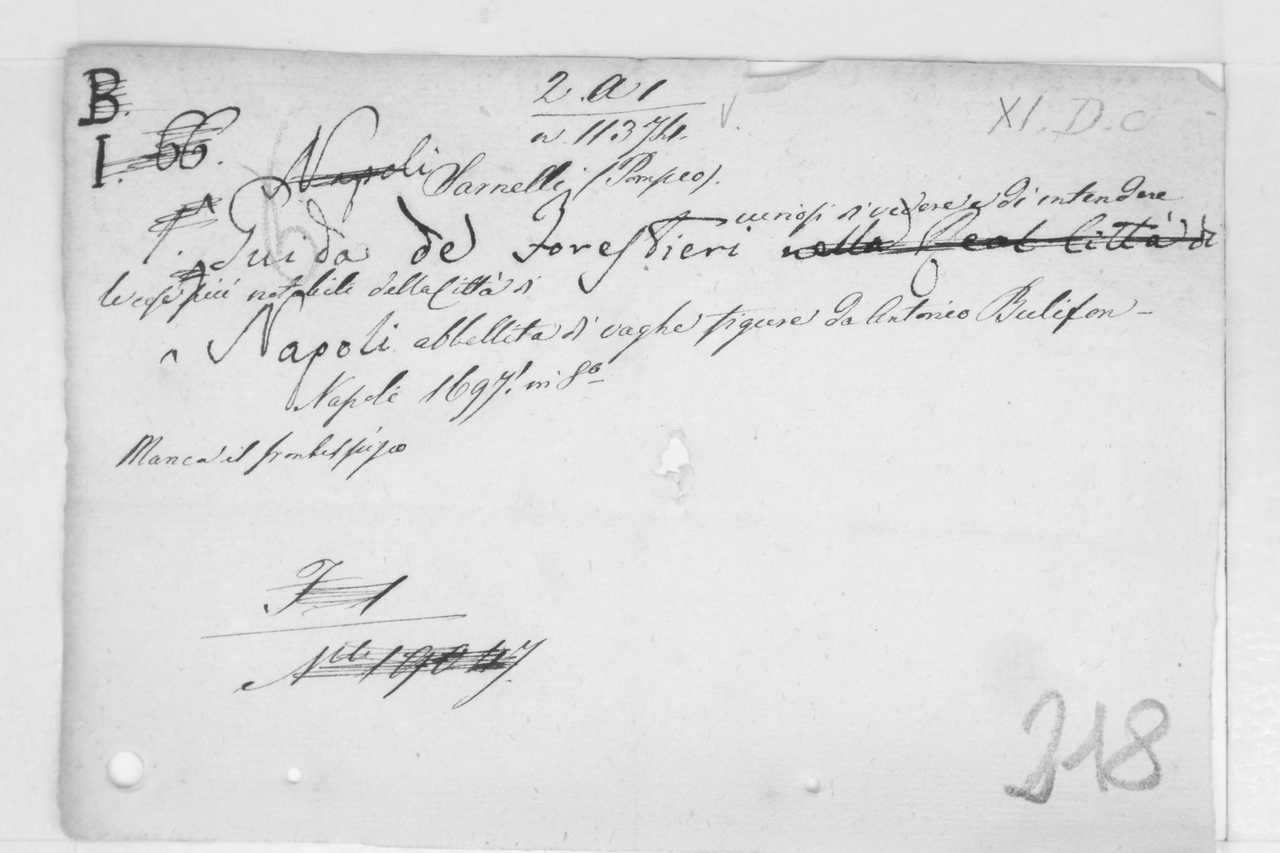 B.
I. 66.
2. A 1
n. 11374.
XI. D. c
Napoli Sarnelli (Pompeo).
curiosi di vedere e di intendere
Guida de' Forestieri nella Real Città di
le cose più notabili della Città di
Napoli abbellita di vaghe figure da Antonio Bulifon-
Napoli 1697. in 8o
Manca il frontespizio
F 1
318